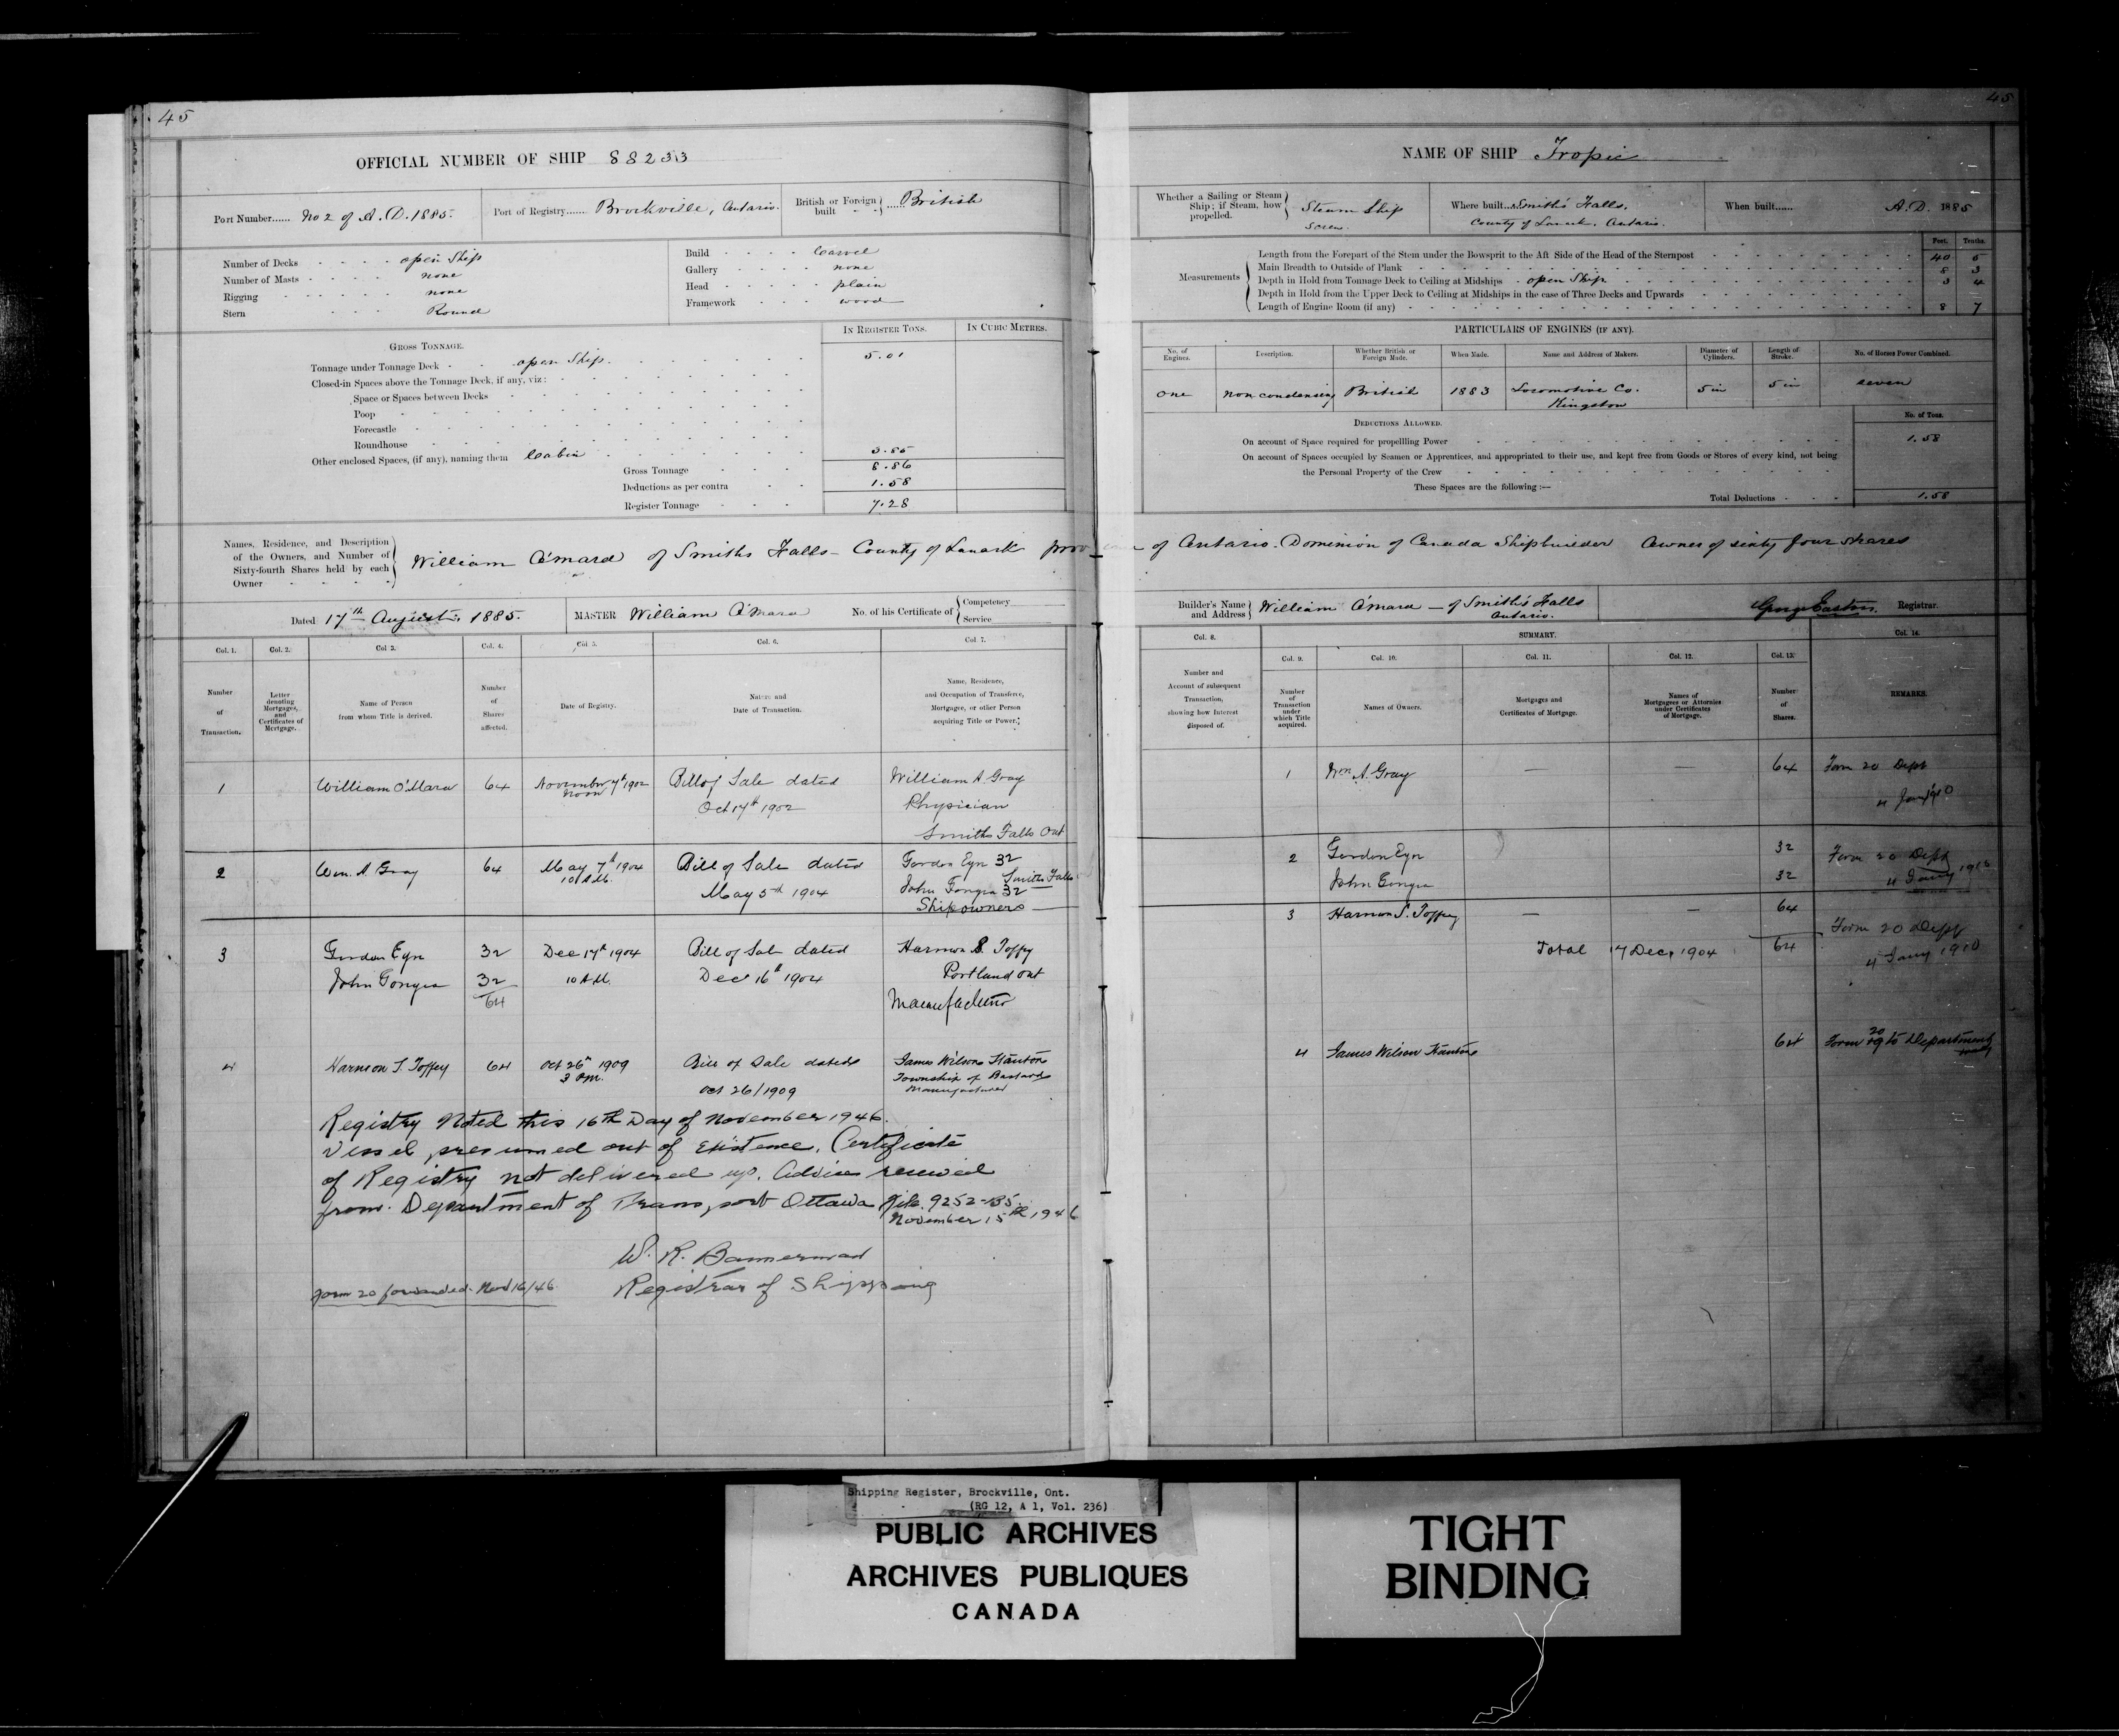 45
OFFICIAL NUMBER OF SHIP 88233
Port Number...... No 2 of A.D. 1885.
Port of Registry...... Brockville, Ontario.
British or Foreign built ...... British
Number of Decks open Ship
Number of Masts none
Rigging none
Stern Round
Build Carvel
Gallery none
Head plain
Framework wood
IN REGISTER TONS.
IN CUBIC METRES.
GROSS TONNAGE.
Tonnage under Tonnage Deck open Ship. 5.01
Closed-in Spaces above the Tonnage Deck, if any, viz:
Space or Spaces between Decks
Poop
Forecastle
Roundhouse
Other enclosed Spaces, (if any), naming them Cabin 3.85
Gross Tonnage 8.86
Deductions as per contra 1.58
Register Tonnage 7.28
Names, Residence, and Description
of the Owners, and Number of
Sixty-fourth Shares held by each
Owner
William O'Mara of Smiths Falls - County of Lanark
Dated 17th August, 1885.
MASTER William O'Mara
No. of his Certificate of
Competency
Service
Col. 1.
Col. 2.
Col 3.
Col. 4.
Col. 5.
Col. 6.
Col. 7.
Number
of
Transaction.
Letter
denoting
Mortgages,
and
Certificates of
Mortgage.
Name of Person
from whom Title is derived.
Number
of
Shares
affected.
Date of Registry.
Nature and
Date of Transaction.
Name, Residence,
and Occupation of Transferee,
Mortgagee, or other Person
acquiring Title or Power.
1 William O'Mara 64 November 7th 1902 Bill of Sale dated William A Gray
noon Oct 17th 1902 Physician
Smiths Falls Ont
2 Wm. A Gray 64 May 7th 1904 Bill of Sale dated Gordon Eyn 32
10 A.M. May 5th 1904 Smiths Falls
John 32
Shipowners
3 Gordon Eyn 32 Dec 17th 1904 Bill of Sale dated Harmon S. Toffey
John 32 10 A.M. Dec 16th 1904 Portland Ont
64 Manufacturer
4 Harmon S. Toffey 64 Oct 26th 1909 Bill of Sale dated James Wilson Stanton
3 P.M. Oct 26/1909 Township of Bastard
Manufacturer
Registry Noted this 16th Day of November 1946.
Vessel presumed out of Existence. Certificate
of Registry not delivered up. Advice received
from Department of Transport Ottawa File. 9252-135
November 15th 1946
W. R. Bannerman
Registrar of Shipping
Form 20 forwarded Nov 16/46
45
NAME OF SHIP Tropic
Whether a Sailing or Steam
Ship; if Steam, how
propelled.
Steam Ship
Screw
Where built.. Smith's Falls,
County of Lanark. Ontario.
When built...... A.D. 1885
Measurements
Feet. Tenths.
Length from the Forepart of the Stem under the Bowsprit to the Aft Side of the Head of the Sternpost 40 5
Main Breadth to Outside of Plank 8 3
Depth in Hold from Tonnage Deck to Ceiling at Midships open Ship 3 4
Depth in Hold from the Upper Deck to Ceiling at Midships in the case of Three Decks and Upwards
Length of Engine Room (if any) 8 7
PARTICULARS OF ENGINES (IF ANY).
No. of
Engines.
Description.
Whether British or
Foreign Made.
When Made.
Name and Address of Makers.
Diameter of
Cylinders.
Length of
Stroke.
No. of Horses Power Combined.
One Non condensing British 1883 Locomotive Co. 5 in 5 in seven
Kingston
DEDUCTIONS ALLOWED.
No. of Tons.
On account of Space required for propelling Power 1.58
On account of Spaces occupied by Seamen or Apprentices, and appropriated to their use, and kept free from Goods or Stores of every kind, not being
the Personal Property of the Crew
These Spaces are the following:—
Total Deductions 1.58
of Ontario. Dominion of Canada Shipbuilder Owner of sixty four shares
Builder's Name
and Address
William O'Mara — of Smith's Falls
Ontario.
George Easton. Registrar.
Col. 8.
SUMMARY.
Col. 14.
Col. 9.
Col. 10.
Col. 11.
Col. 12.
Col. 13.
Number and
Account of subsequent
Transaction,
showing how Interest
disposed of.
Number
of
Transaction
under
which Title
acquired.
Names of Owners.
Mortgages and
Certificates of Mortgage.
Names of
Mortgagees or Attornies
under Certificates
of Mortgage.
Number
of
Shares.
REMARKS.
1 Wm A. Gray — — 64 Form 20 Dept
4 Jany 1910
2 Gordon Eyn 32 Form 20 Dept
John 32 4 Jany 1910
3 Harmon S. Toffey — — 64
Form 20 Dept
Total 17 Dec. 1904 64
4 Jany 1910
4 James Wilson Stanton 64 Form 20 to Department
Shipping Register, Brockville, Ont.
(RG 12, A 1, Vol. 236)
PUBLIC ARCHIVES
ARCHIVES PUBLIQUES
CANADA
TIGHT
BINDING